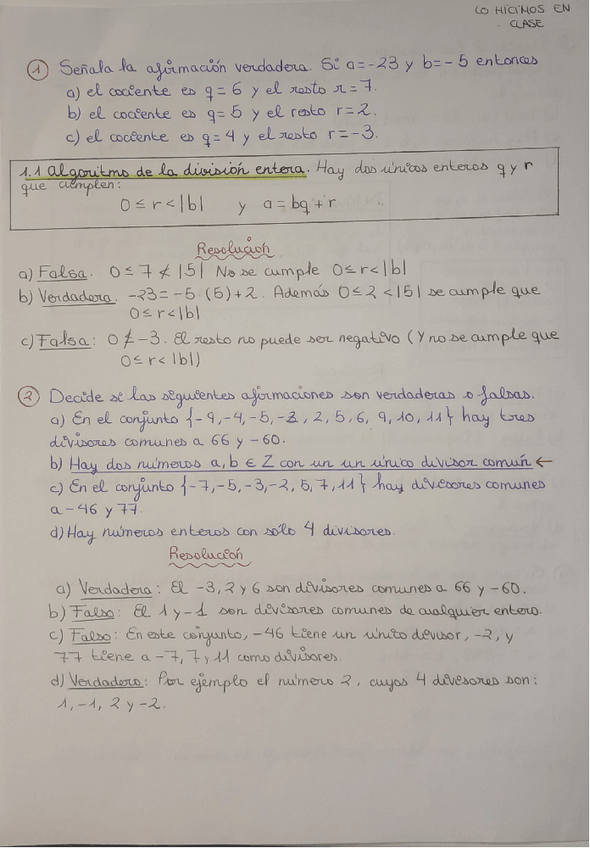 LO HICIMOS EN
CLASE
① Señala la afirmación verdadera. Si a=-23 y b=-5 entonces
a) el cociente es q=6 y el resto r=7.
b) el cociente es q=5 y el resto r=2.
c) el cociente es q=4 y el resto r=-3.
1.1 Algoritmo de la división entera. Hay dos únicos enteros q y r
que cumplen:
0≤r<|b| y a=bq+r
Resolución
a) Falsa. 0≤7≮|5| No se cumple 0≤r<|b|
b) Verdadera. -23=-5·(5)+2. Además 0≤2<|5| se cumple que
0≤r<|b|
c) Falsa: 0≰-3. El resto no puede ser negativo (Y no se cumple que
0≤r<|b|)
② Decide si las siguientes afirmaciones son verdaderas o falsas.
a) En el conjunto {-9,-4,-5,-2, 2, 5, 6, 9, 10, 11} hay tres
divisores comunes a 66 y -60.
b) Hay dos números a,b ∈ Z con un un único divisor común ←
c) En el conjunto {-7,-5,-3,-2, 5, 7, 11} hay divisores comunes
a -46 y 77.
d) Hay números enteros con sólo 4 divisores.
Resolución
a) Verdadera: El -3, 2 y 6 son divisores comunes a 66 y -60.
b) Falso: El 1 y -1 son divisores comunes de cualquier entero.
c) Falso: En este conjunto, -46 tiene un único devisor, -2, y
77 tiene a -7, 7 y 11 como divisores.
d) Verdadero: Por ejemplo el número 2, cuyos 4 divesores son:
1, -1, 2 y -2.